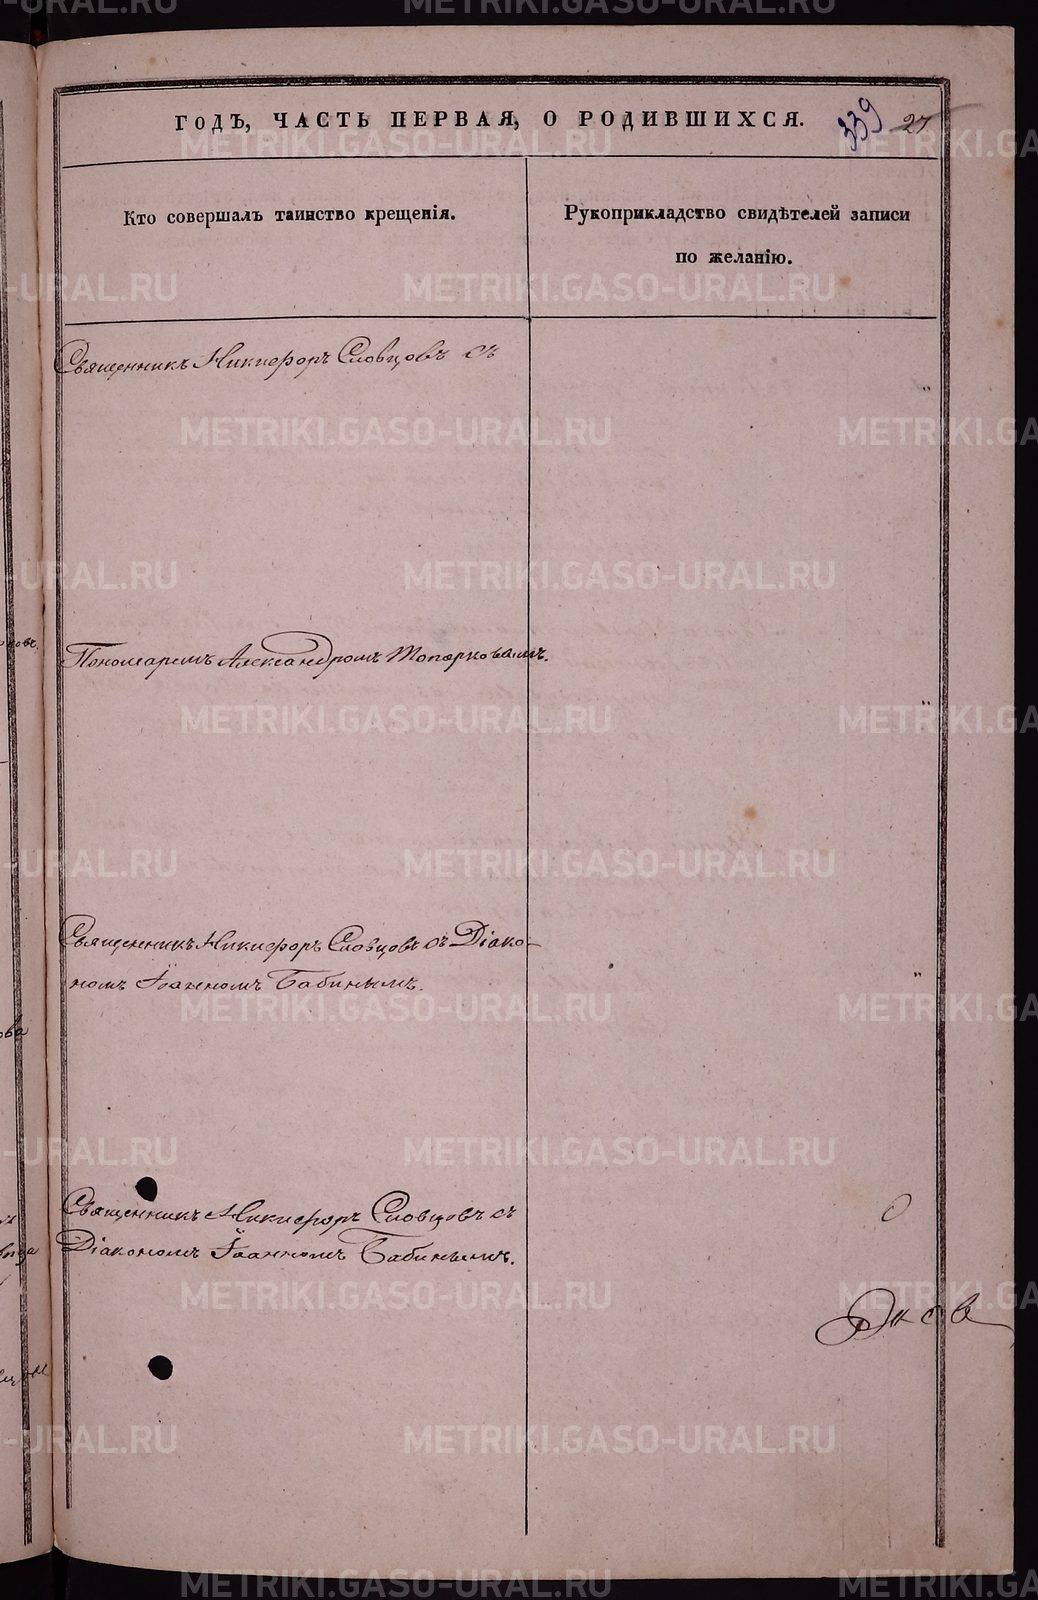 ГОДЪ, ЧАСТЬ ПЕРВАЯ, О РОДИВШИХСЯ.
339 27
Кто совершалъ таинство крещенія.
Рукоприкладство свидѣтелей записи
по желанію.
Священникъ Никифоръ Словцовъ съ
Пономаремъ Александромъ Топорковымъ.
Священникъ Никифоръ Словцовъ съ Діако-
номъ Іоанномъ Бабинымъ.
Священникъ Никифоръ Словцовъ съ
Діакономъ Іоанномъ Бабинымъ.
METRIKI.GASO-URAL.RU